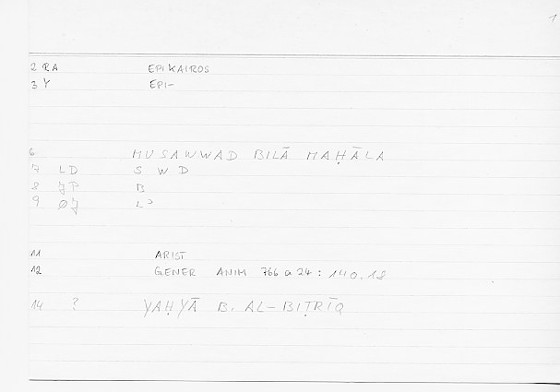 1
2 RA EPIKAIROS
3 Y EPI-
6 MUSAWWAD BILĀ MAḤĀLA
7 LD S W D
8 JP B
9 ØJ L
11 ARIST
12 GENER ANIM 766 a 24 : 140.18
14 ? YAḤYĀ B. AL-BIṬRĪQ